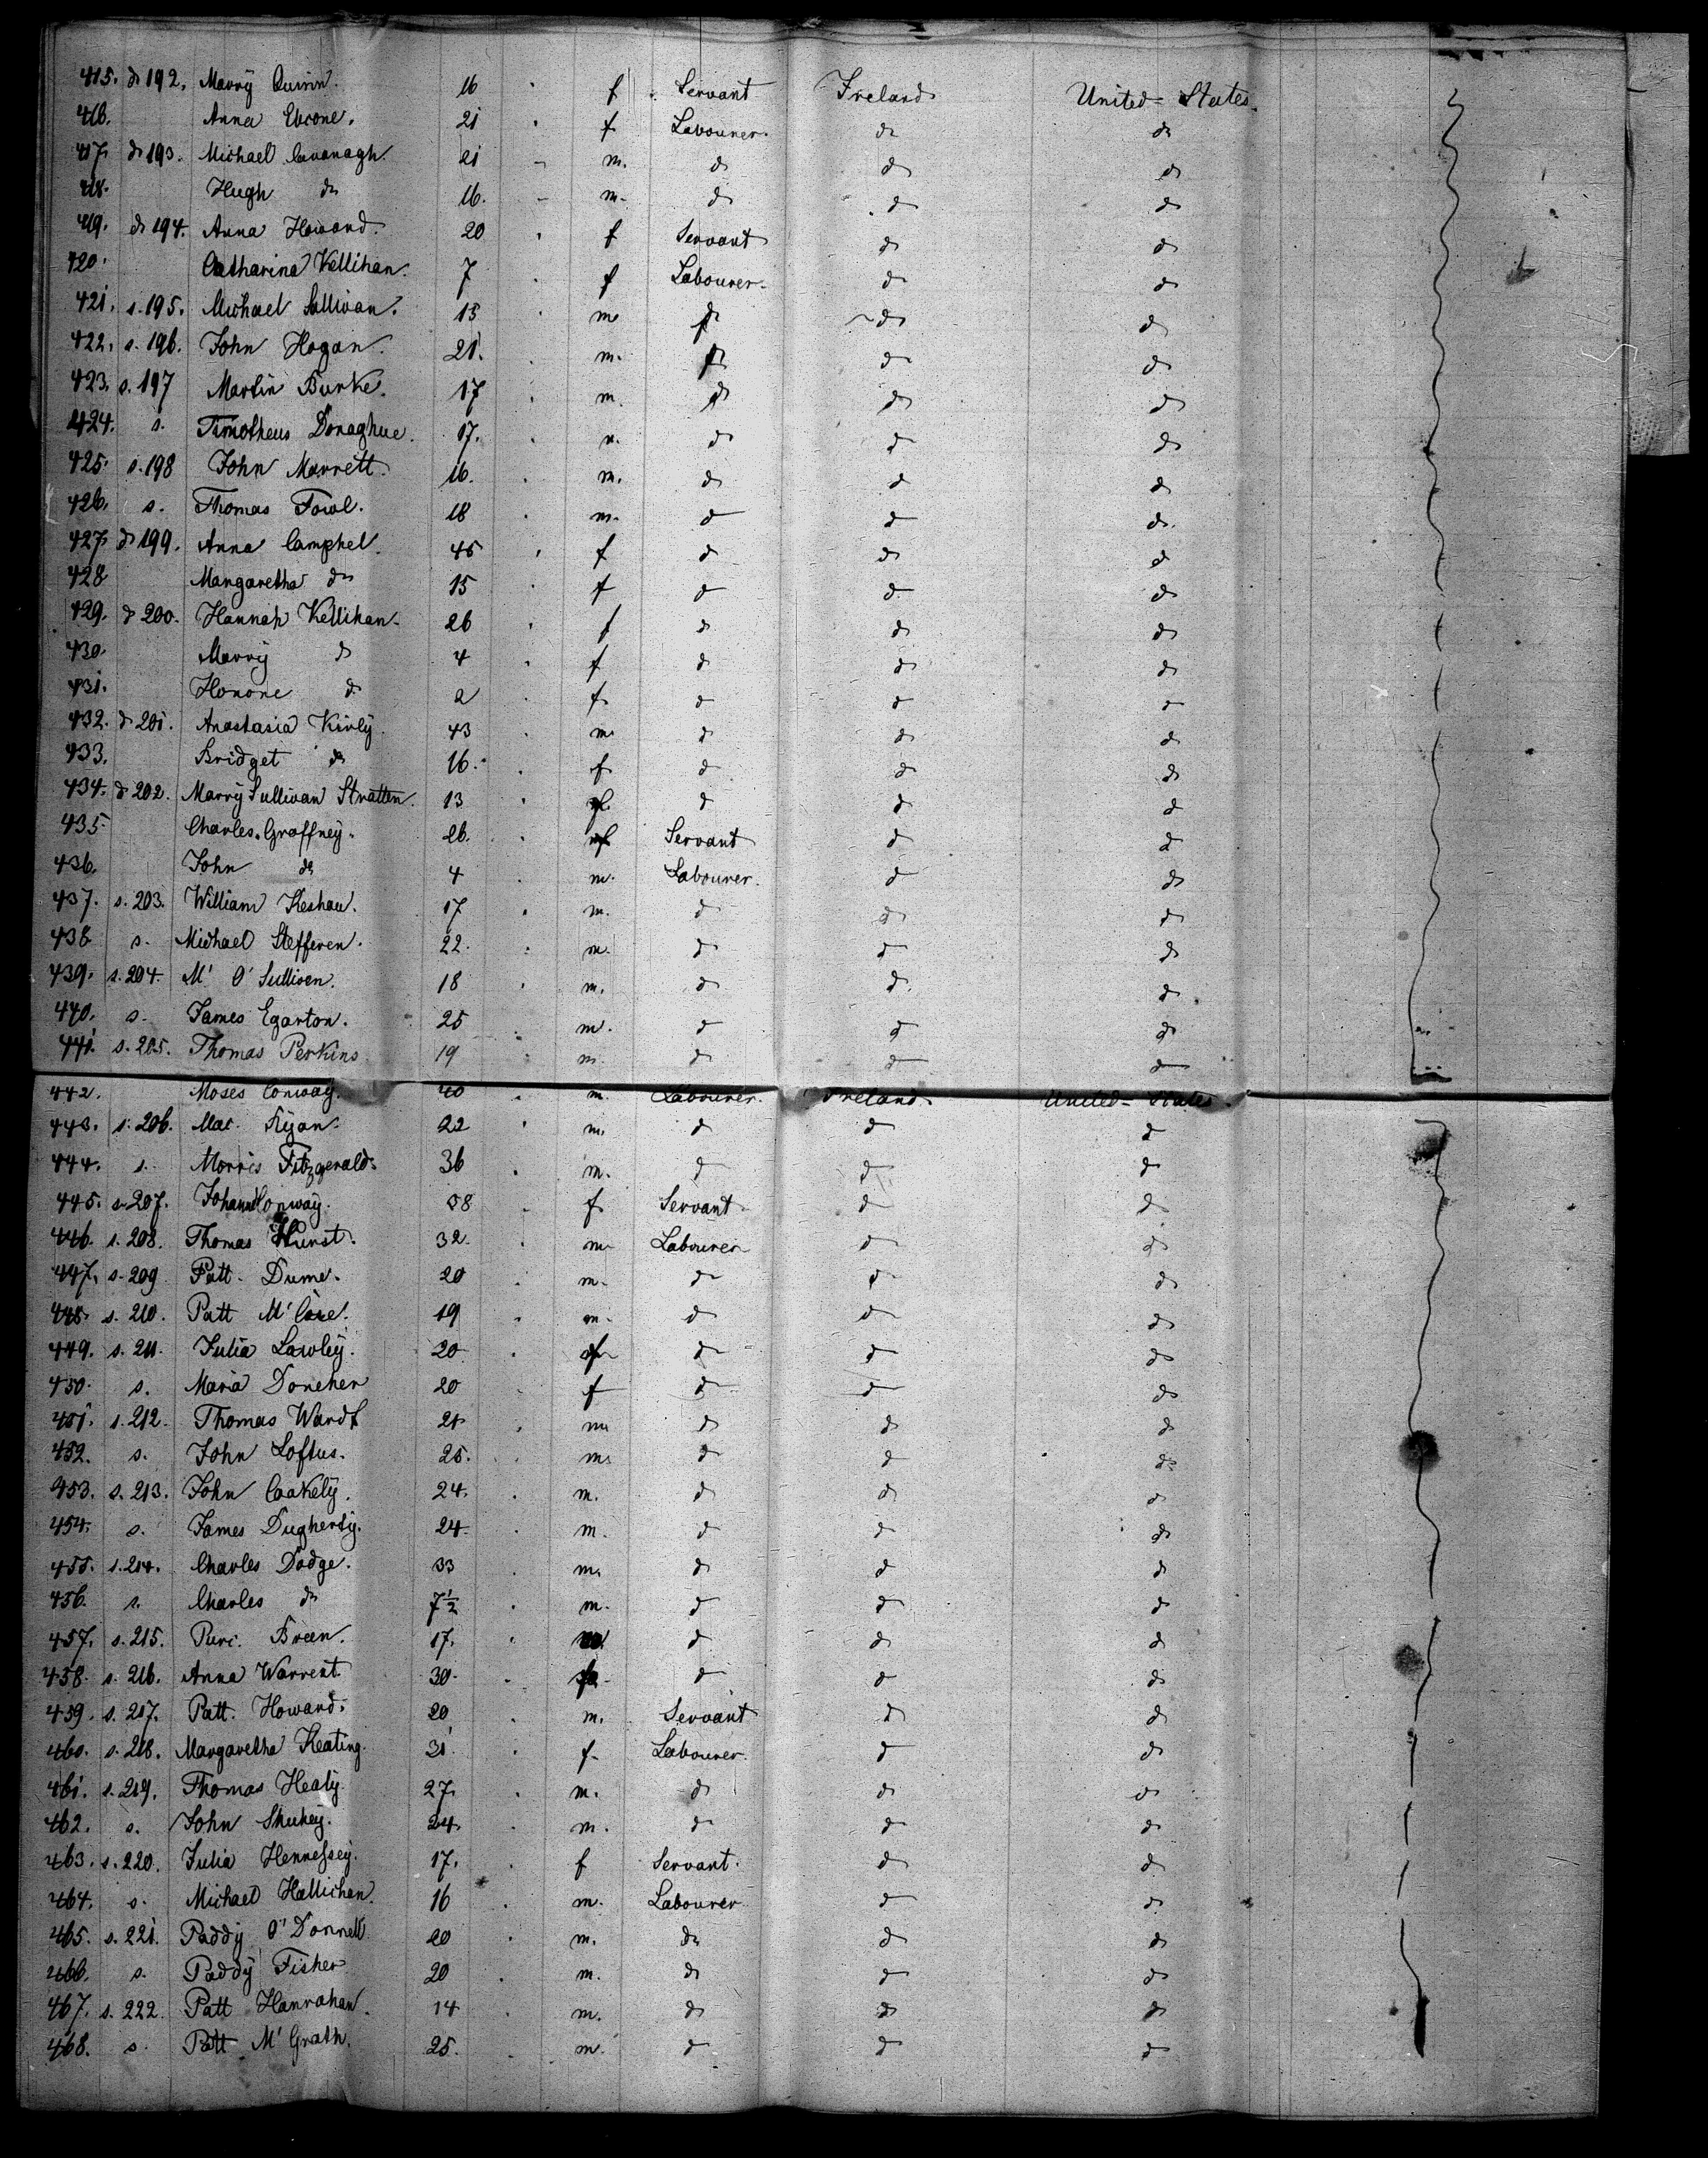 415. do 192. Marry Quinn. 16 f Servant Ireland United States.
416. Anna 21 f Labourer. do do
417. do 193. Michael Cavanagh. 21 m. do do do
418. Hugh do 16. m. do do do
419. do 194. Anna Howard. 20 f Servant do do
420. Catharina Kellihan. 7 f Labourer. do do
421. s. 195. Michael Sullivan. 13 m do do do
422. s. 196. John Hogan. 21. m. do do do
423. s. 197 Martin Burke. 17 m. do do do
424. s. Timotheus Donaghue. 17. m. do do do
425. s. 198 John Marrett. 16. m. do do do
426. s. Thomas Fowl. 18 m. do do do
427. do 199. Anna Camphel. 45 f do do do
428 Margaretha do 15 f do do do
429. do 200. Hannah Kellihan. 26 f do do do
430. Marry do 4 f do do do
431. Honore do 2 f. do do do
432. do 201. Anastasia Kirly. 43 m. do do do
433. Bridget do 16. f. do do do
434. do 202. Marry Sullivan Stratten. 13 f. do do do
435. Charles Graffney. 26. Servant do do
436. John do 4 m. Labourer. do do
437. s. 203. William Keshau. 17 m. do do do
438 s. Michael Stefferen. 22. m. do do do
439. s. 204. M' O'Sulliven. 18 m. do do do
440. s. James Egarton. 25 m. do do do
441. s. 205. Thomas Perkins 19 m. do do do
442. Moses Conway. 40 m. Labourer. Ireland. United States.
443. s. 206. Mat. Ryan. 22 m. do do do
444. s. Morris Fitzgerald. 36 m. do do do
445. s. 207. Johanna Conway. 58 f. Servant do do
446. s. 208. Thomas Hurst. 32. m. Labourer do do
447. s. 209 Patt. Dume. 20 m. do do do
448. s. 210. Patt M' 19 m. do do do
449. s. 211. Julia Lawley. 20 f do do do
450. s. Maria Doneher 20 f do do do
451. s. 212. Thomas Wardt 21 m. do do do
452. s. John Loftus. 25. m. do do do
453. s. 213. John Coakely. 24. m. do do do
454. s. James Dugherty. 24. m. do do do
455. s. 214. Charles Dodge. 33 m. do do do
456. s. Charles do 7½ m. do do do
457. s. 215. Breen. 17. do do do
458. s. 216. Anna Warrent. 30. do do do
459. s. 217. Patt. Howard. 20 m. Servant do do
460. s. 218. Margaretha Keating. 31 f. Labourer. do do
461. s. 219. Thomas Healy. 27. m. do do do
462. s. John Shuhey. 24. m. do do do
463. s. 220. Julia Hennessey. 17. f Servant. do do
464. s. Michael Hallichen. 16 m. Labourer do do
465. s. 221. Paddy O'Donnell 20 m. do do do
466. s. Paddy Fisher 20 m. do do do
467. s. 222. Patt Hanrahan. 14 m. do do do
468. s. Patt M'Grath. 25. m. do do do